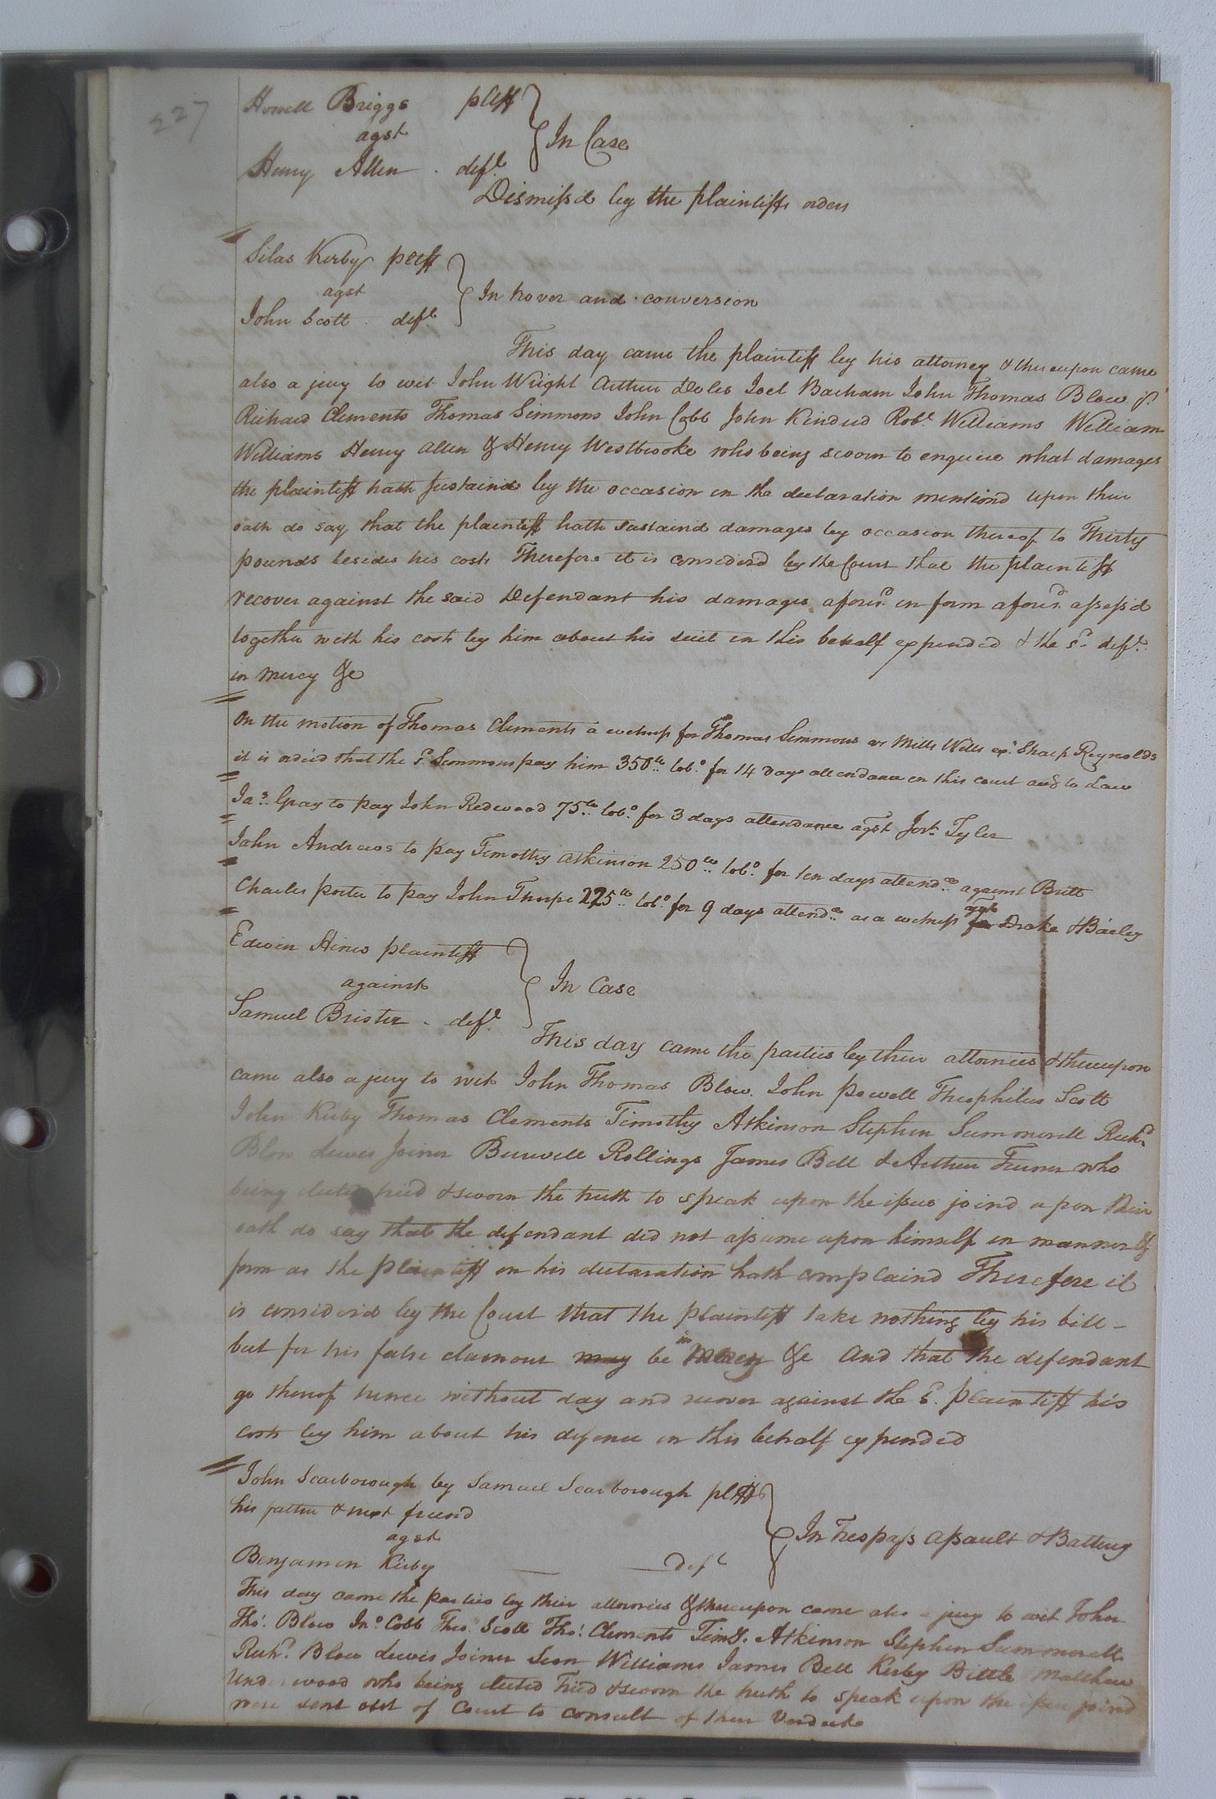 227
Howell Briggs pltff
agst
Henry Allen . deft
In Case
Dismissd by the plaintiffs order
Silas Kirby pltff
agst
John Scott deft
In trover and conversion
This day came the plaintiff by his attorney & thereupon came
also a jury to wit John Wright Arthur Doles Joel Barham John Thomas Blow jr
Richard Clements Thomas Simmons John Cobb John Kindred Robt. Williams William
Williams Henry Allen & Henry Westbrooke who being sworn to enquire what damages
the plaintiff hath sustaind by the occasion in the declaration mentiond upon their
oath do say that the plaintiff hath sustaind damages by occasion thereof to Thirty
pounds besides his costs Therefore it is considerd by the Court that the plaintiff
recover against the said Defendant his damages aforesd. in form aforesd. assessd
together with his costs by him about his suit in this behalf expended & the sd. deft.
in mercy &c
On the motion of Thomas Clements a witness for Thomas Simmons Mills Wills Sharp Reynolds
it is orderd that the sd. Simmons pay him 350 lbs. tobo. for 14 days attendance in this court accg to Law
Jas. Gray to pay John Redwood 75 lbs. tobo. for 3 days attendance agst Tyler
John Andrews to pay Timothy Atkinson 250 lbs. tobo. for ten days attendce. against Britt
Charles porter to pay John Thorpe 225 lbs. tobo. for 9 days attendce. as a witness for agst Drake & Bailey
Edwin Hines plaintiff
against
Samuel Brister . deft
In Case
This day came the parties by their attornies & thereupon
came also a jury to wit John Thomas Blow John powell Theophilus Scott
John Kirby Thomas Clements Timothy Atkinson Stephen Summerell Richd.
Blow Lewis Joiner Burwell Rollings James Bell & Arthur Turner who
being elected tried & sworn the truth to speak upon the issue joind upon their
oath do say that the defendant did not assume upon himself in manner &
form as the plaintiff in his declaration hath complaind Therefore it
is considerd by the Court that the plaintiff take nothing by his bill -
but for his false clamour may be in mercy &c And that the defendant
go thereof hence without day and recover against the sd. plaintiff his
costs by him about his defence in this behalf expended
John Scarborough by Samuel Scarborough pltff
his father & next friend
agst
Benjamin Kirby deft
In Trespass Assault & Battery
This day came the parties by their attornies & thereupon came also a jury to wit John
Thos. Blow Jno. Cobb Theo. Scott Thos. Clements Timy. Atkinson Stephen Summerell
Richd. Blow Lewis Joiner Williams James Bell Kirby Bittle Matthew
Underwood who being elected tried & sworn the truth to speak upon the issue joind
were sent out of Court to consult of their Verdict